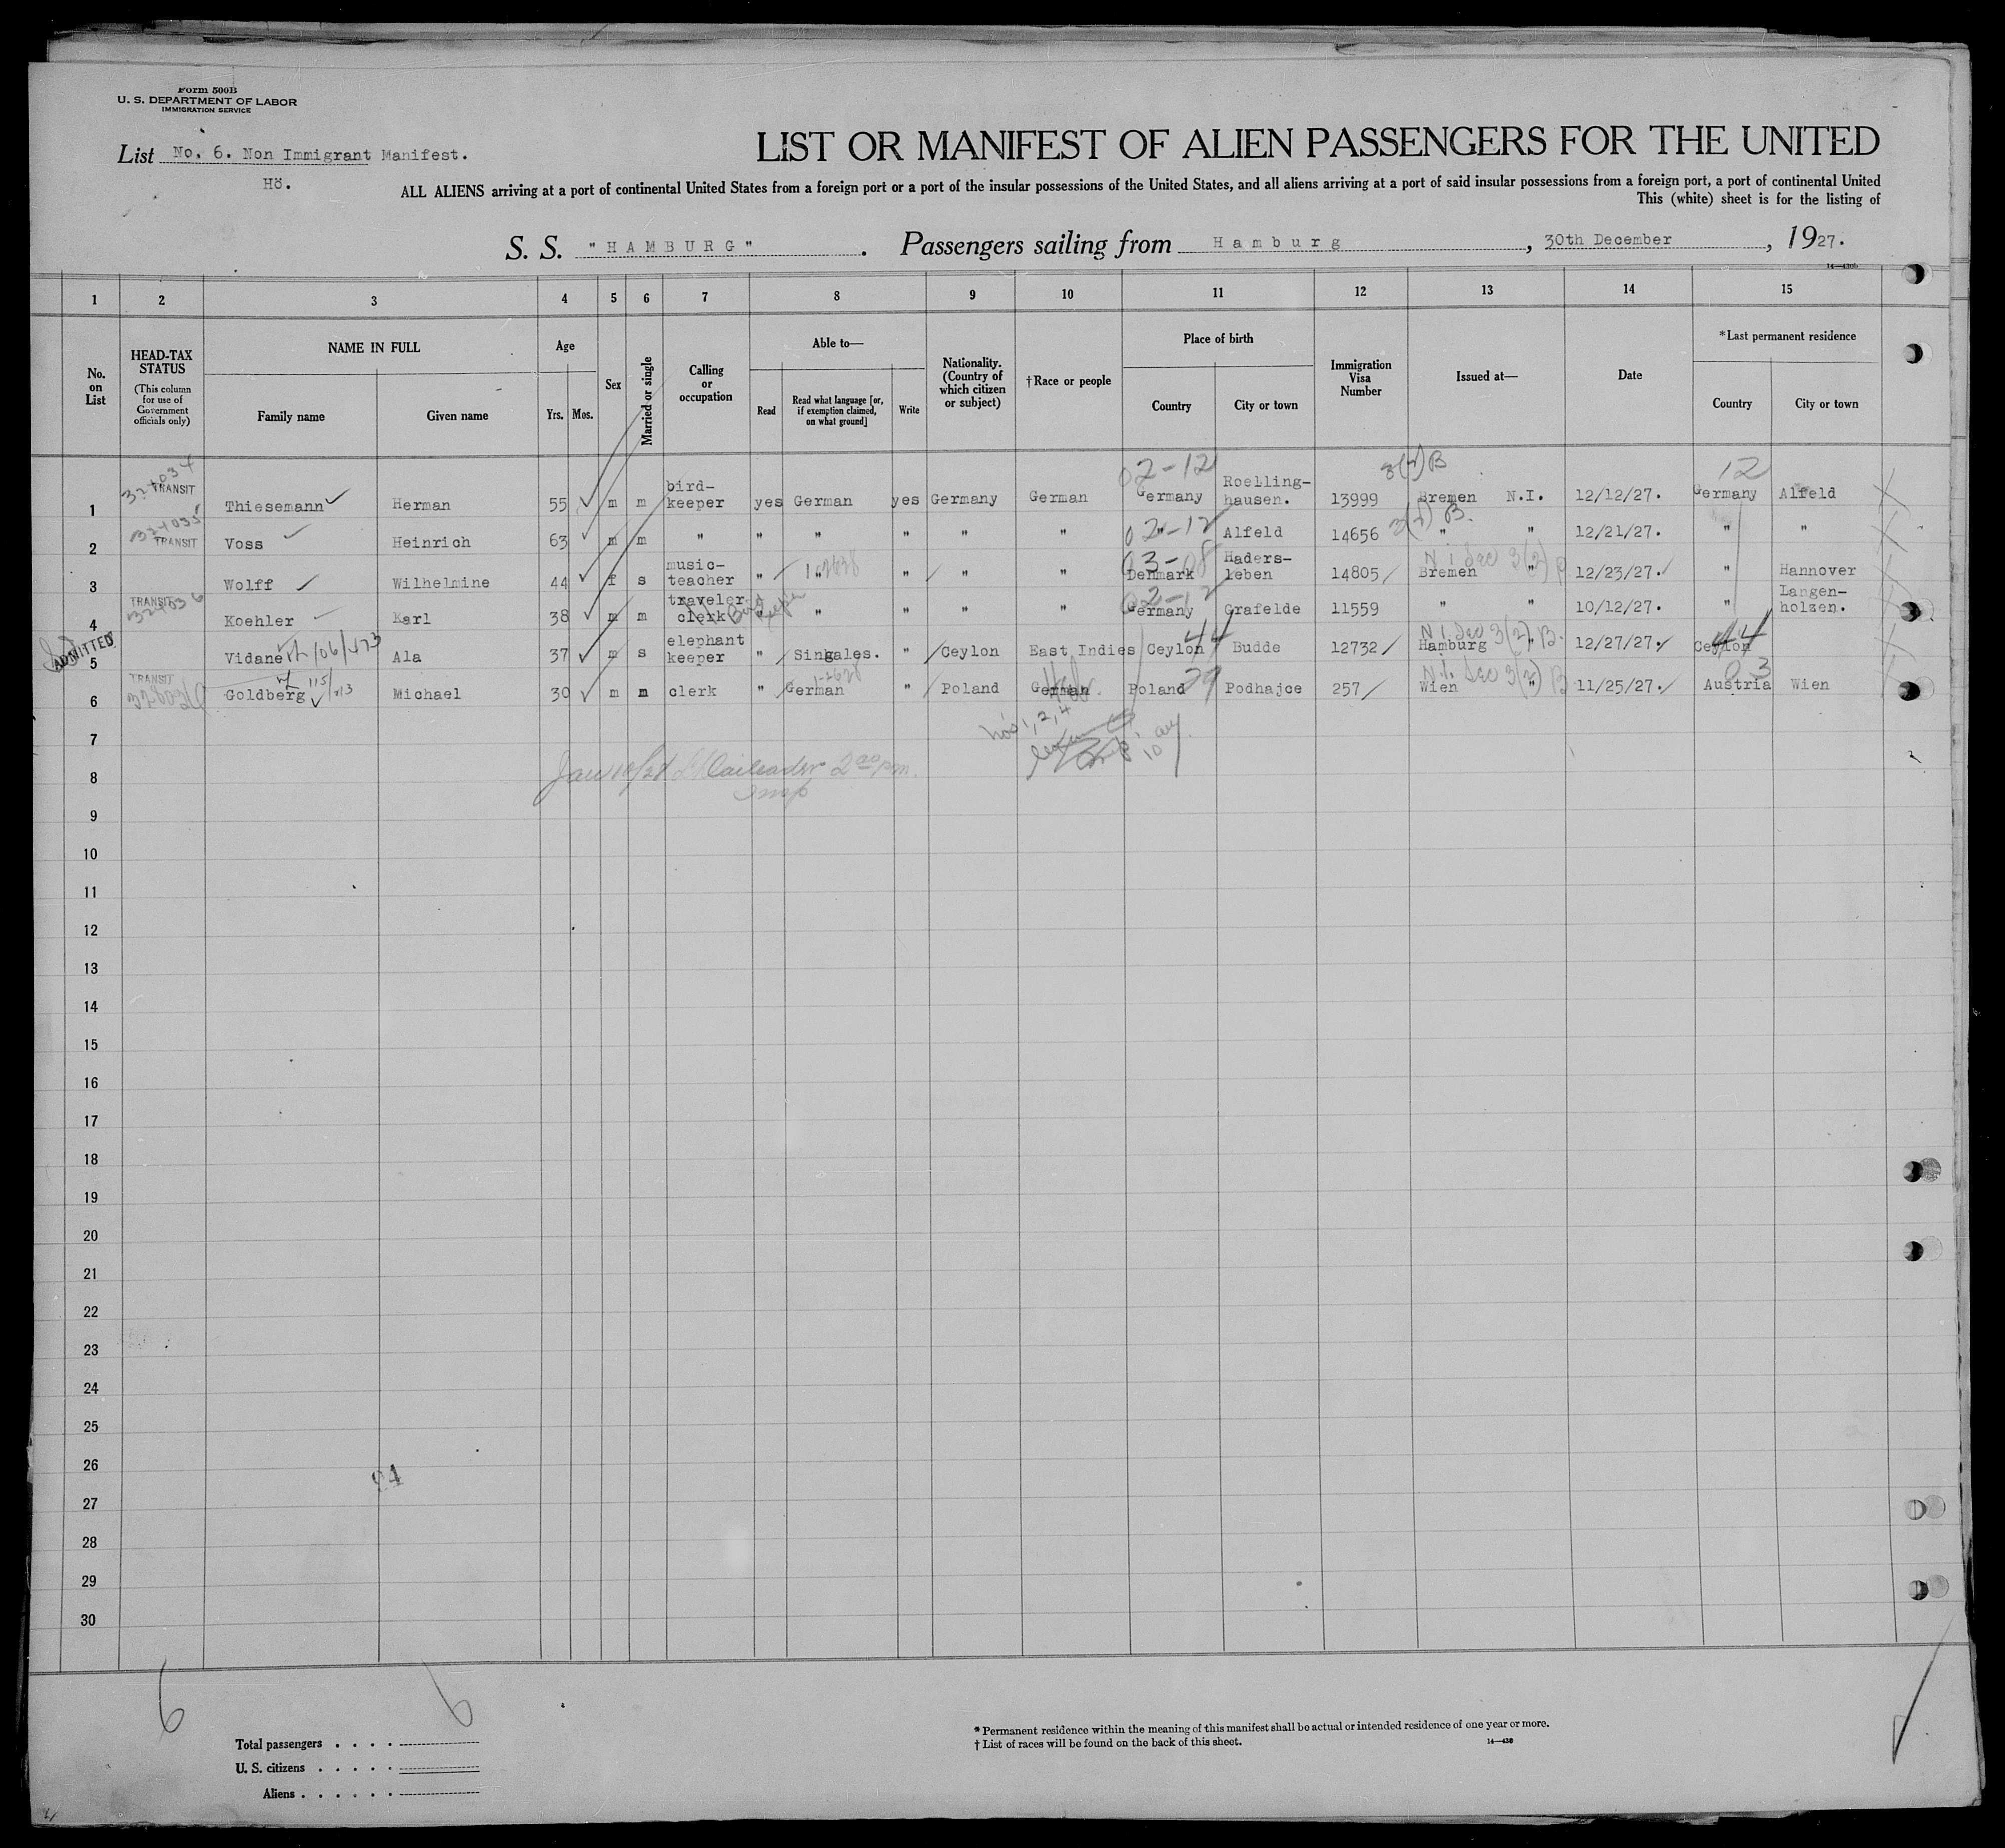 Form 500B
U. S. DEPARTMENT OF LABOR
IMMIGRATION SERVICE
List No. 6. Non Immigrant Manifest.
Hö.
LIST OR MANIFEST OF ALIEN PASSENGERS FOR THE UNITED
ALL ALIENS arriving at a port of continental United States from a foreign port or a port of the insular possessions of the United States, and all aliens arriving at a port of said insular possessions from a foreign port, a port of continental United
This (white) sheet is for the listing of
S. S. "HAMBURG". Passengers sailing from Hamburg, 30th December, 1927.
1 2 3 4 5 6 7 8 9 10 11 12 13 14 15
No. on List
HEAD-TAX STATUS
(This column for use of Government officials only)
NAME IN FULL
Family name Given name
Age
Yrs. Mos.
Sex
Married or single
Calling or occupation
Able to—
Read
Read what language [or, if exemption claimed, on what ground]
Write
Nationality. (Country of which citizen or subject)
†Race or people
Place of birth
Country City or town
Immigration Visa Number
Issued at—
Date
*Last permanent residence
Country City or town
02-12 3(2)B 12
1 324034 TRANSIT Thiesemann Herman 55 m m bird-keeper yes German yes Germany German Germany Roelling-hausen. 13999 Bremen N.I. 12/12/27. Germany Alfeld
02-12 3(2) B.
2 324035 TRANSIT Voss Heinrich 63 m m " " " " " " " Alfeld 14656 " " 12/21/27. " "
03-08 N I Sec 3(2) B
3 Wolff Wilhelmine 44 f s music-teacher " " " " " Denmark Haders-leben 14805 Bremen " 12/23/27. " Hannover
02-12
4 TRANSIT 324036 Koehler Karl 38 m m traveler clerk Bird keeper " " " " " Germany Grafelde 11559 " " 10/12/27. " Langen-holzen.
44 N I Sec 3(2) B. 44
ADMITTED 5 Vidane 106/473 Ala 37 m s elephant keeper " Singales. " Ceylon East Indies Ceylon Budde 12732 Hamburg " 12/27/27. Ceylon
29 N.I. Sec 3(2) B 03
6 TRANSIT Goldberg 115/713 Michael 30 m m clerk " German " Poland German Poland Podhajce 257 Wien " 11/25/27. Austria Wien
No's 1, 2, 4
7
8
Jan 10/28 2 00 pm.
Insp
9
10
11
12
13
14
15
16
17
18
19
20
21
22
23
24
25
26
27
28
29
30
6 6
Total passengers
U. S. citizens
Aliens
* Permanent residence within the meaning of this manifest shall be actual or intended residence of one year or more.
† List of races will be found on the back of this sheet.
14—430